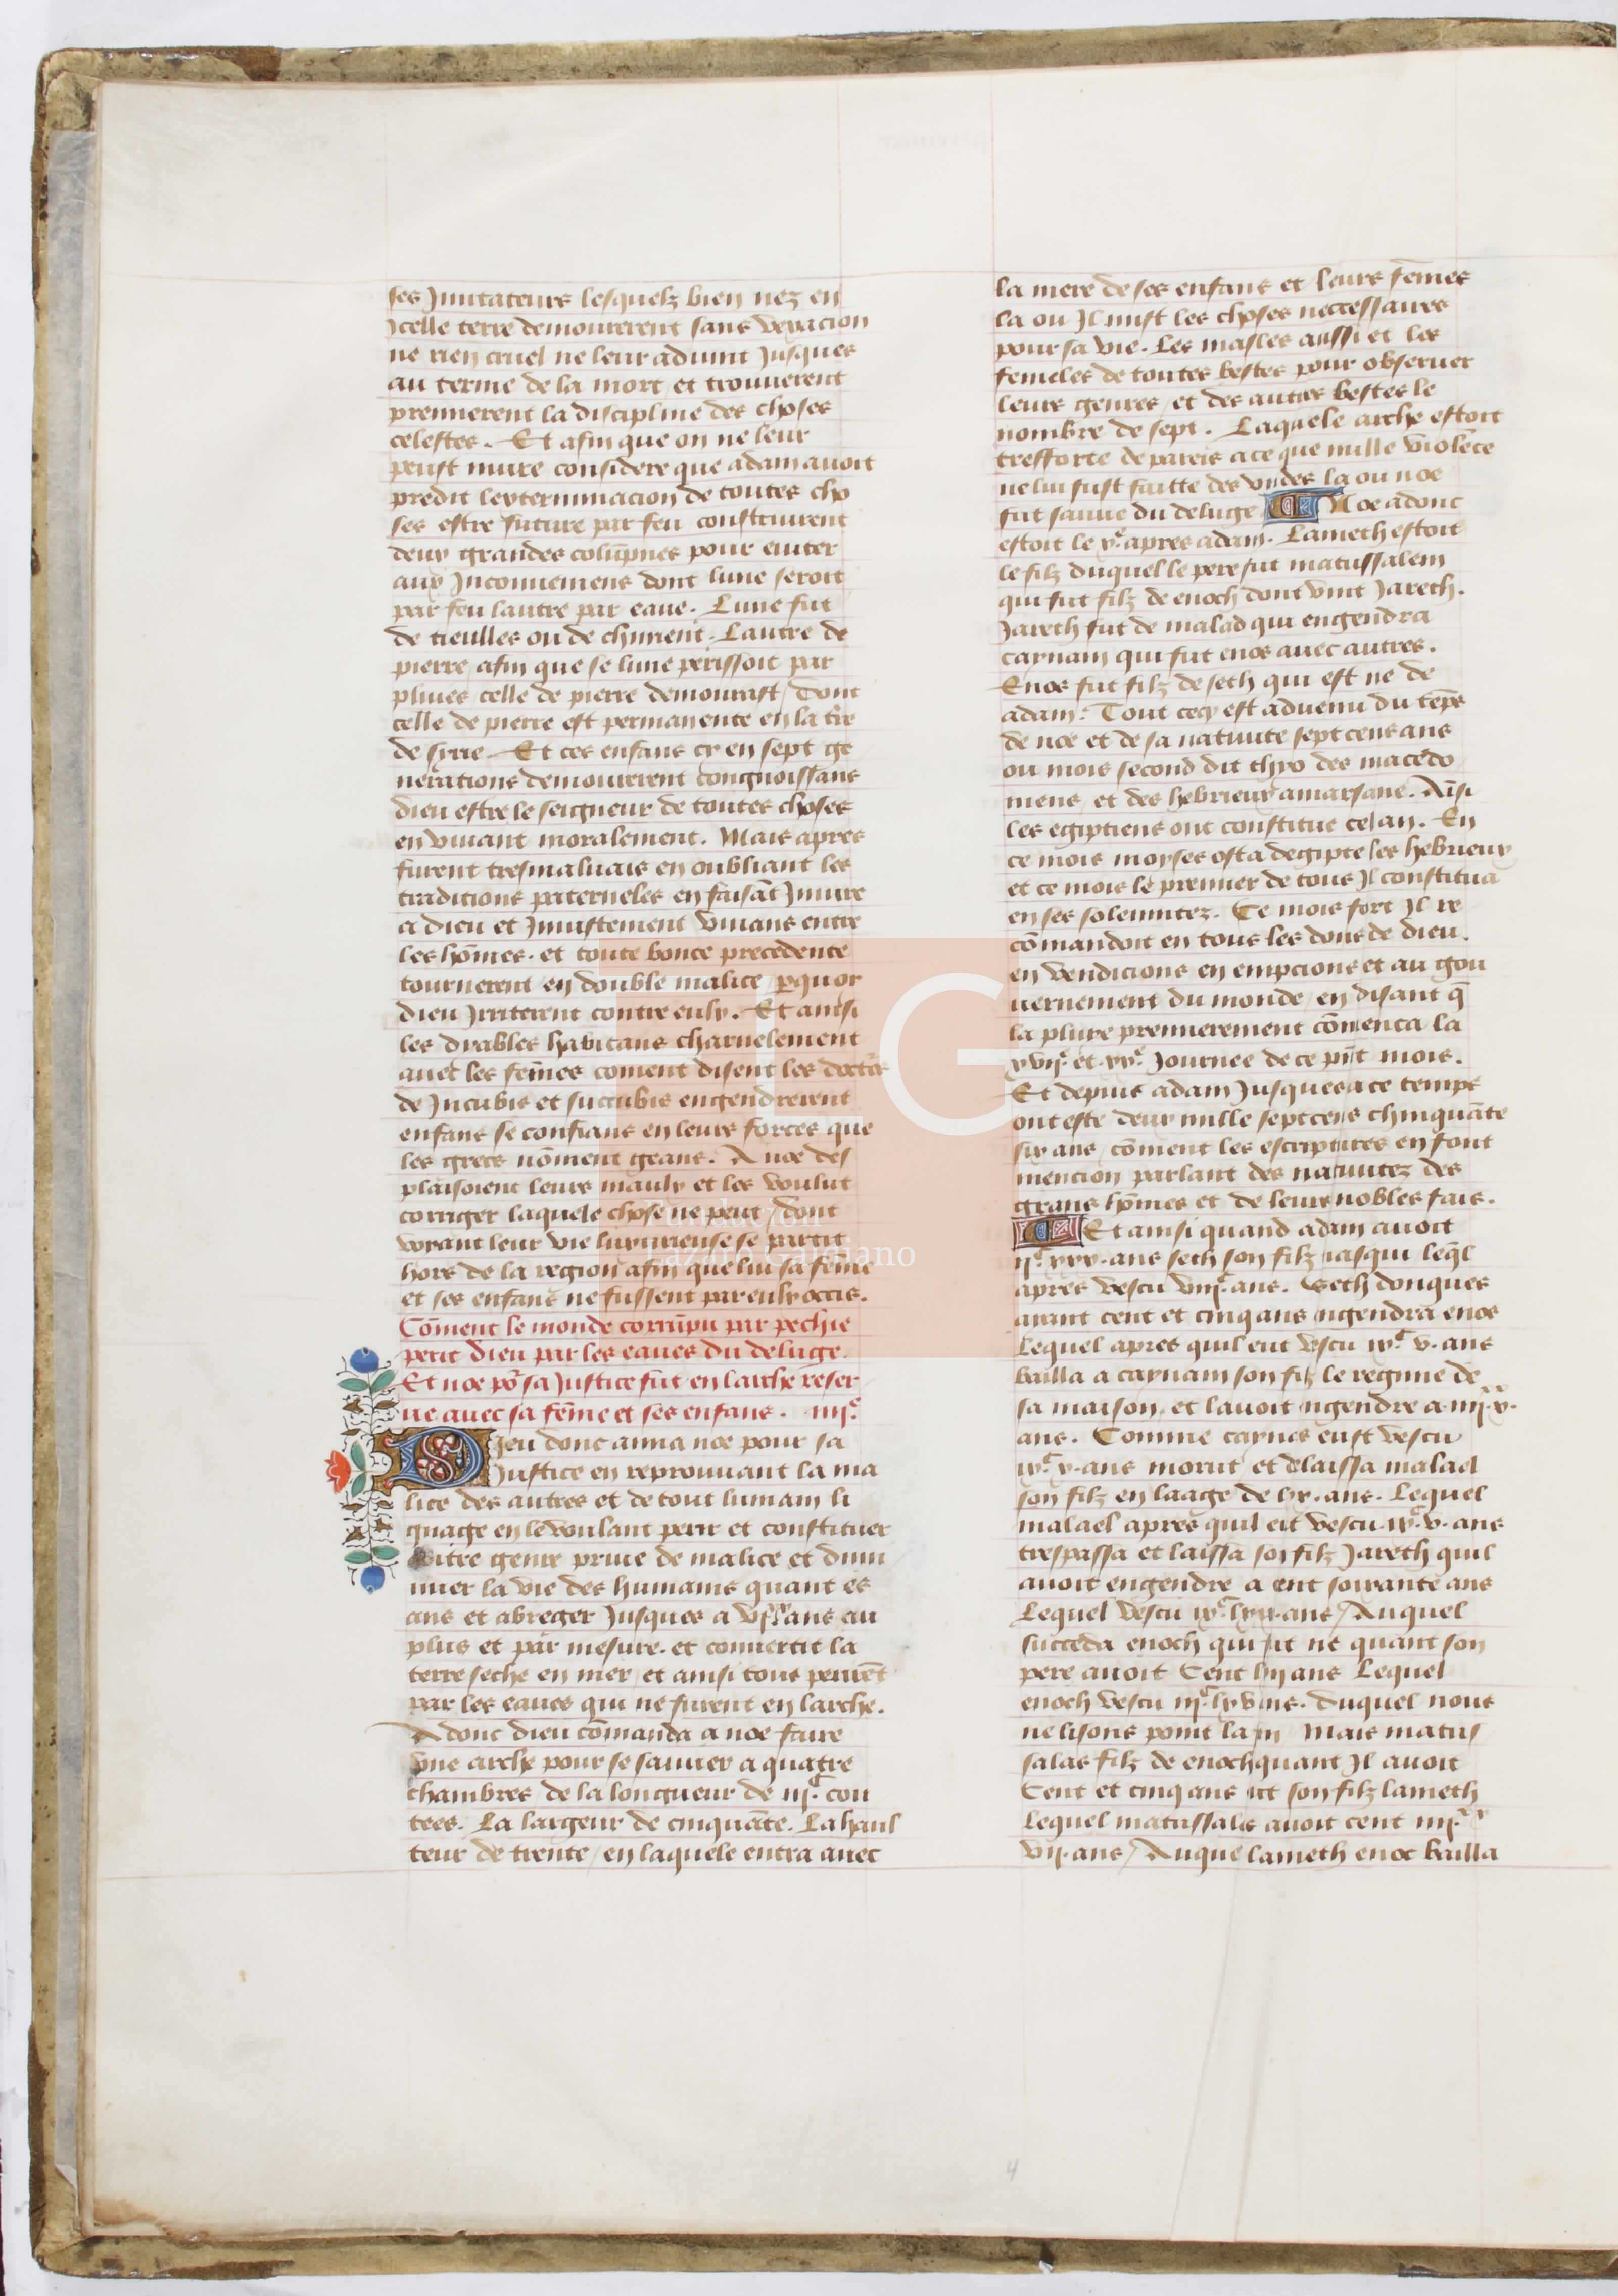 ses Jmitateurs lesquelz bien nez en
Jcelle terre demourerent sans vexacion
ne rien cruel ne leur aduint Jusques
au terme de la mort et trouuerent
premierent la discipline des choses
celestes. Et afin que on ne leur
peust nuire considere que adam auoit
predit lexterminacion de toutes cho
ses estre future par feu construirent
deux grandes colūpnes pour euiter
aux Jnconueniens dont lune seroit
par feu lautre par eaue. Lune fut
de tieulles ou de chiment. Lautre de
pierre afin que se lune perissoit par
pluies celle de pierre demourast / dont
celle de pierre est permanente en la tr̄e
de syrie. Et ces enfans cy en sept ge
neracions demourerent congnoissans
dieu estre le seigneur de toutes choses
en viuant moralement. Mais apres
furent tresmaluais en oubliant les
tradicions paterneles en faisāt Jniure
a dieu et Jniustement viuans entre
les hōmes. et toute bonte precedente
tournerent en double malice / p̄quoy
dieu Jrriterent contre eulx. Et ainsi
les dyables habitans charnelement
auec les fēmes coment disent les docters
de Jncubis et succubis engendrerent
enfans se confians en leurs forces que
les grecs nōment geans. A noe des
plaisoient leurs maulx et les voulut
corriger laquele chose ne peut / dont
voyant leur vie luxurieuse se partit
hors de la region afin que lui sa fēme
et ses enfans ne fussent par eulx occis.
Cōment le monde corrūpu par pechie
perit dieu par les eaues du deluge.
Et noe po͛ sa Justice fut en larche reser
ue auec sa fēme et ses enfans. iiij.e
Dieu donc ama noe pour sa
Justice en reprouuant la ma
lice des autres et de tout lumain li
gnage en le voulant perir et constituer
autre genre priue de malice et dimi
nuer la vie des humains quant es
ans et abreger Jusques a vjxx ans au
plus et par mesure. et conuertit la
terre seche en mer et ainsi tous perirēt
par les eaues qui ne furent en larche.
Adonc dieu cōmanda a noe faire
vne arche pour se sauuer a quatre
chambres de la longueur de iij.c cou
tees. La largeur de cinquāte. La haul
teur de trente / en laquele entra auec
la mere de ses enfans et leurs fēmes
la ou Jl mist les choses neccessaires
pour sa vie. Les masles aussi et les
femeles de toutes bestes pour obseruer
leurs genres et des autres bestes le
nombre de sept. Laquele arche estoit
tresforte de pareis a ce que nulle violēce
ne lui fust faitte des vndes la ou noe
fut sauue du deluge Noe adonc
estoit le x.e apres adam. Lameth estoit
le filz duquel le pere fut matussalem
qui fut filz de enoch dont vint Jareth.
Jareth fut de malad qui engendra
caynam qui fut enos auec autres.
Enos fut filz de seth qui est ne de
adam. Tout cecy est aduenu du tēps
de noe et de sa natiuite sept cens ans
ou mois second dit thyo des macedo
niens et des hebrieux amarsane. Aīsi
les egiptiens ont constitue cel an. En
ce mois moyses osta degipte les hebrieux
et ce mois le premier de tous Jl constitua
en ses solennitez. Ce mois fort Jl re
cōmandoit en tous les dons de dieu.
en vendicions en empcions et au gou
uernement du monde / en disant q̄
la pluye premierement cōmenca la
xvij.e et xx.e Journee de ce pn̄t mois.
Et depuis adam Jusques a ce temps
ont este deux mille sept cens chinquāte
six ans cōment les escriptures en font
mencion parlant des natiuitez des
grans hōmes et de leurs nobles fais.
Et ainsi quand adam auoit
ij.c xxx. ans seth son filz nasqui leq̄l
apres vescu viij.c ans. Seth donques
aiant cent et cinq ans ngendra enos
Lequel apres quil eut vescu ix.c v. ans
bailla a caynam son filz le regime de
sa maison et lauoit ngendre a iiij.xx x.
ans. Comme caynas eust vescu
ix.c x. ans morut et delaissa malael
son filz en laage de lxx. ans. Lequel
malael apres quil eit vescu. ix.c v. ans
trespassa et laissa son filz Jareth quil
auoit engendre a ent soixante ans
Lequel vescu ix.c lxij. ans / Auquel
succeda enoch qui fut ne quant son
pere auoit Cent lxij ans Lequel
enoch vescu iij.c lxv ans. duquel nous
ne lisons point la fin Mais matus
salas filz de enoch quant Jl auoit
Cent et cinq ans ut son filz lameth
Lequel matussales auoit cent iiij.xx
vij. ans / Auque lameth enoc bailla
4
LG
Fundación
Lázaro Galdiano